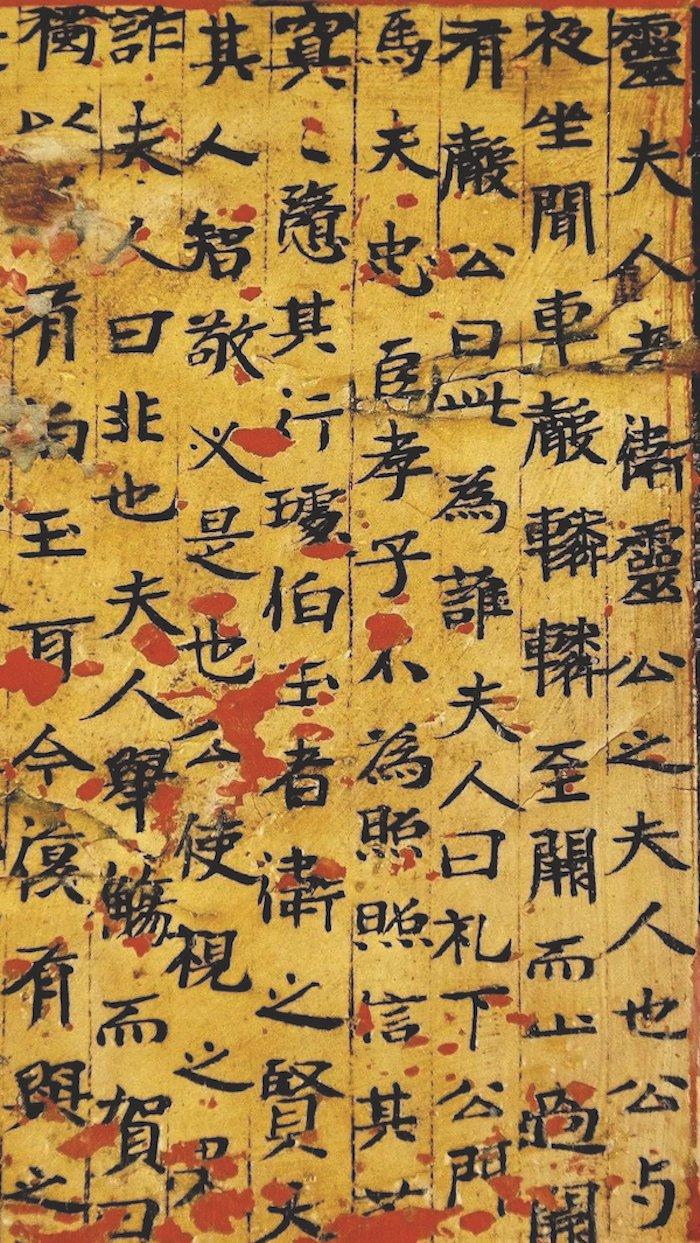 靈夫人者衛靈公之夫人也公与
夜坐聞車聲轔轔至闕而止過闕
有聲公曰此為誰夫人曰礼下公門
馬夫忠臣孝子不為照照信其
冥〻憜其行璩伯玉者衛之賢大
其人智敬必是也公使視之果
詐夫人曰非也夫人舉觴而賀曰
獨以有伯玉耳今復有與之